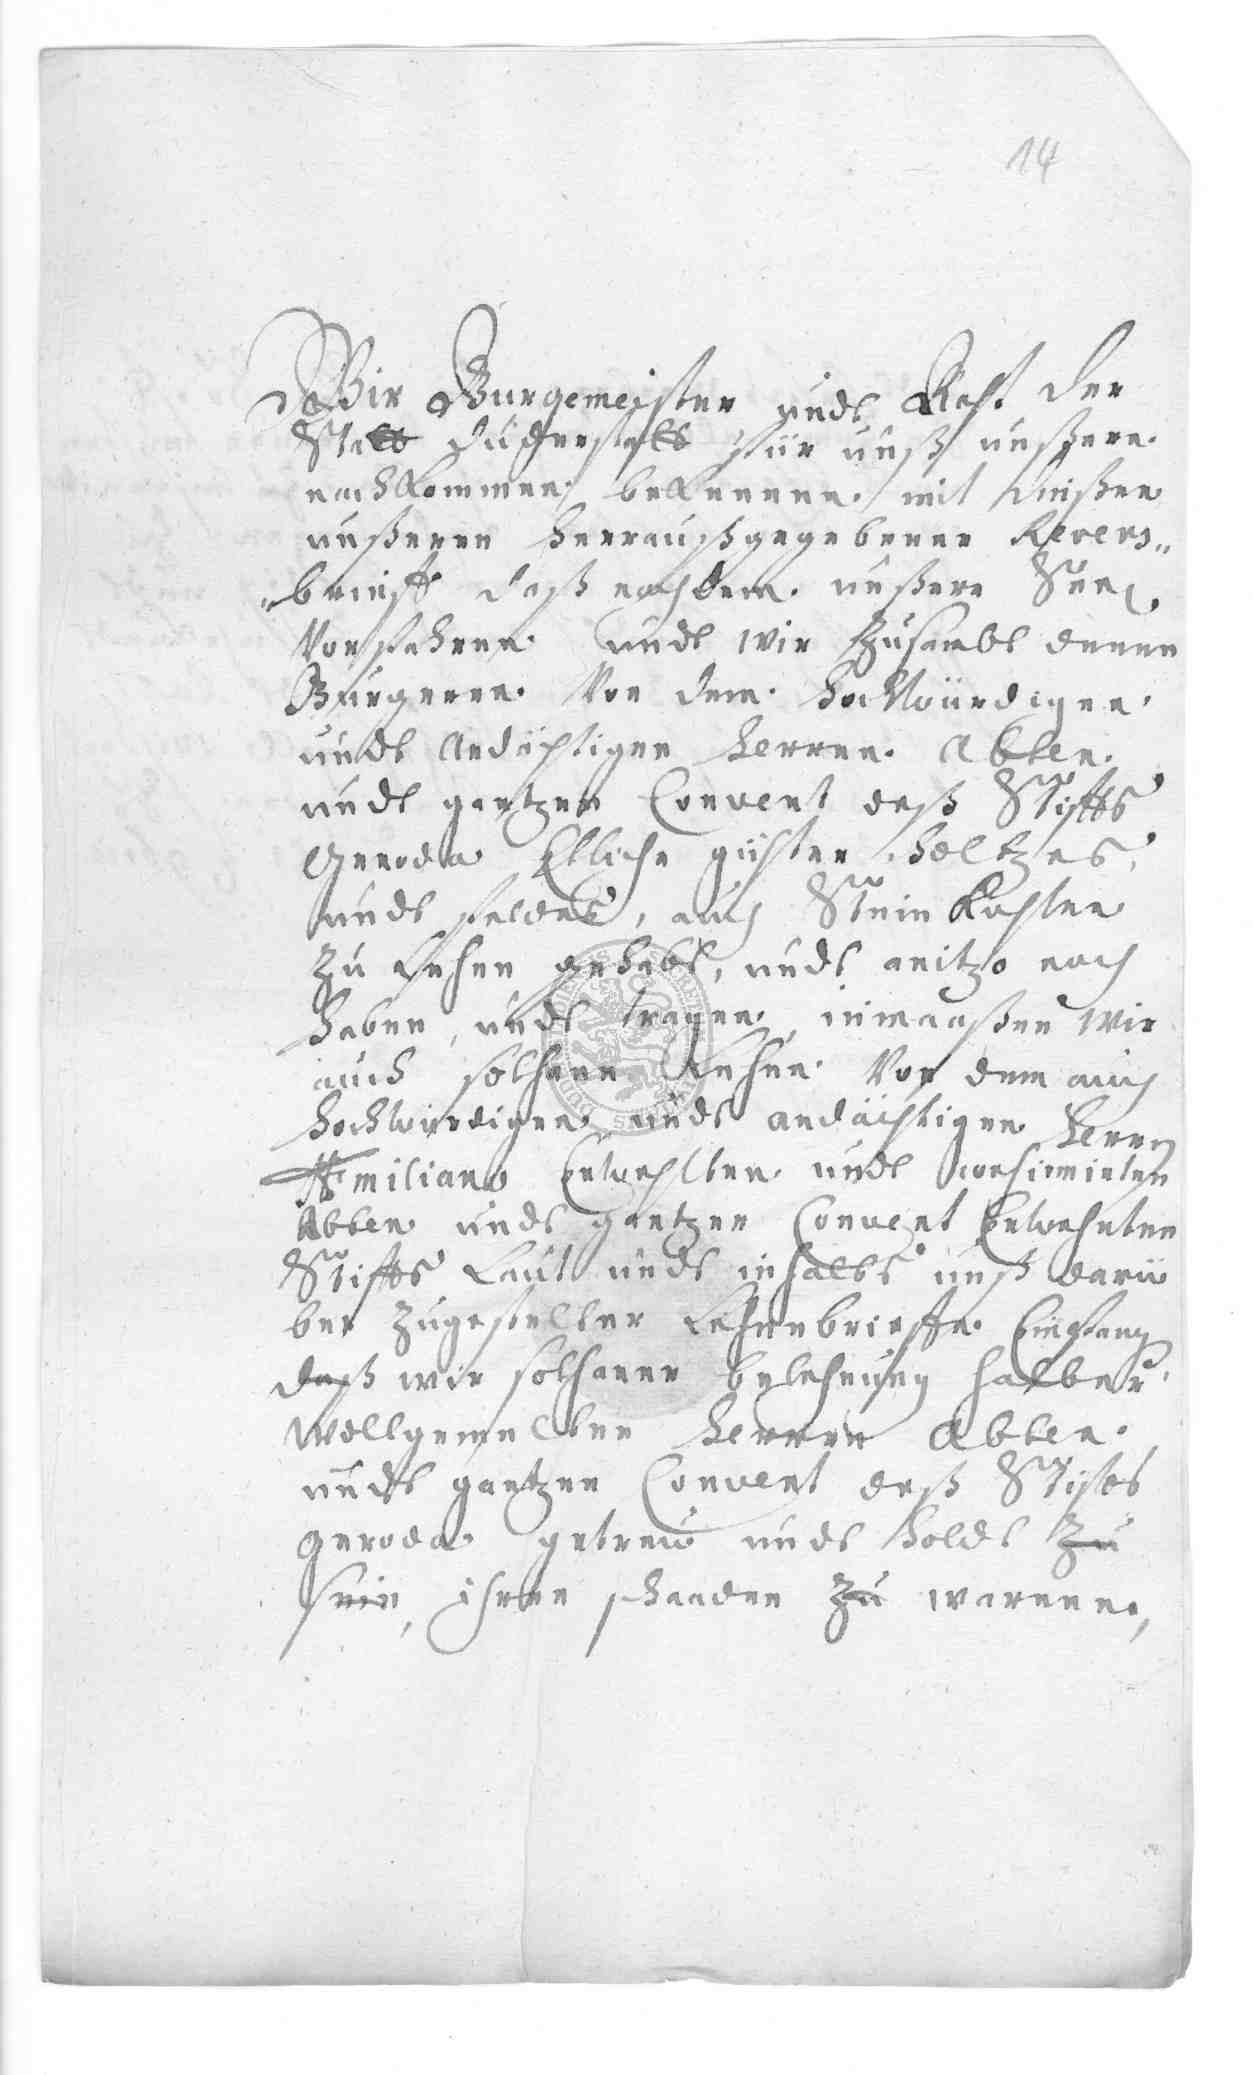 14
Wir Burgemeister undt Raht der
Stadt Duderstadt für unß unßere
nachkommen bekennen mit dießen
unßeren herraußgegebenen Revers-
brieff daß nachdem unßere Seel.
Vorfahren undt wir zusambt denen
Bürgeren von dem hochwürdigen
undt Andächtigen herren Abten
undt gantzen Convent deß Stiffts
Gerroda Etliche güther holtzes
undt feldes, auch Steinkuhlen
zu Lehen gehabt, undt anitzo noch
haben, undt tragen, inmaaßen wir
auch solchane Lehen von dem auch
hochwürdigen undt andächtigen Herrn
Æmiliano Erwehlten undt confirmirten
Abten undt gantzen Convent Erwehnten
Stiffts Laut undt inhalts unß darü
ber zugestelter Lehenbrieffe Empfang
daß wir solchaner belehnung halber
wollgemelten herren Abten
undt gantzen Convent deß Stiffts
geroda getrew undt holdt zu
sein, ihren schaaden zu warnen,